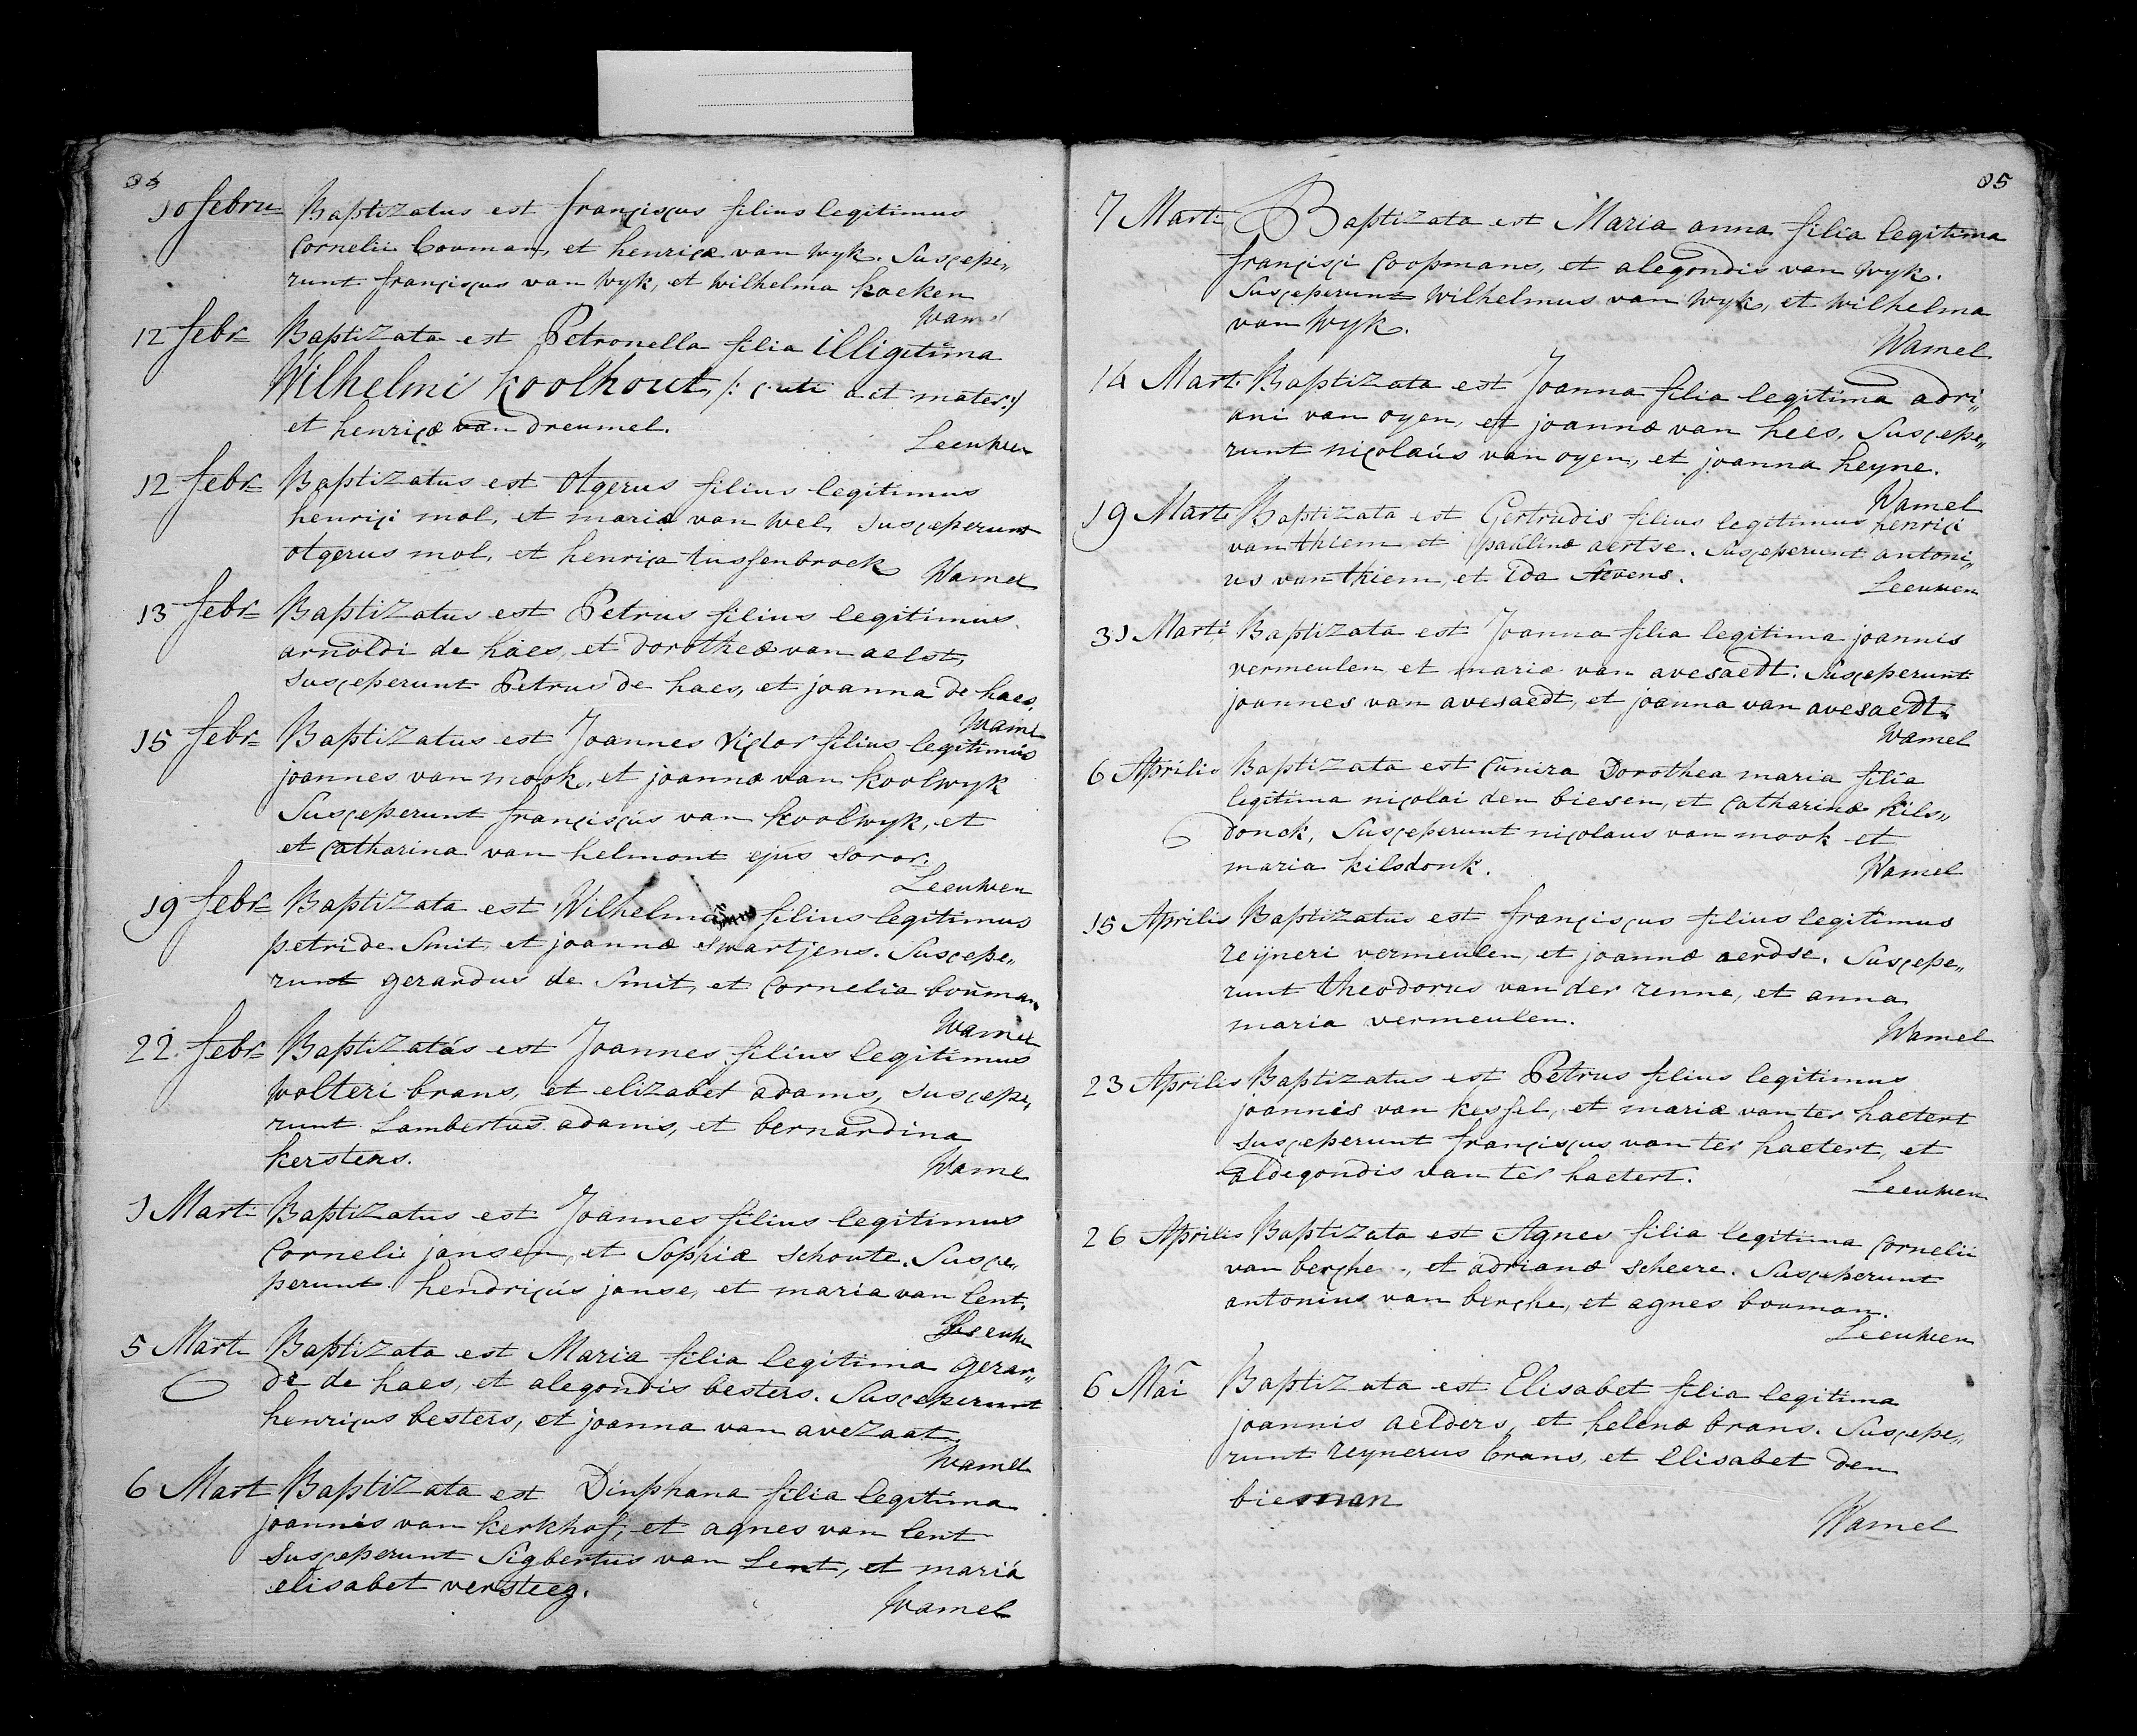 10 febru Baptizatus est franciscus filius legitimus
Cornelii Couman, et henricæ van wyk. Suscepe„
runt franciscus van wyk, et wilhelma koeken
Wamel
12 febr Baptizata est Petronella filia illigitima
Wilhelmi koolhout, /: cuti ait mater:/
et henricæ van dreumel.
Leeuwen
12 febr Baptizatus est Otgerus filius legitimus
henrici mol, et mariæ van wel, susceperunt
otgerus mol, et henrica tussenbroek
Wamel
13 febr Baptizatus est Petrus filius legitimus
arnoldi de haes, et dorotheæ van aelst,
susceperunt Petrus de haes, et joanna de haes.
Wamel
15 febr Baptizatus est Joannes Victor filius legitimus
joannes van mook, et joannæ van koolwyk
Susceperunt franciscus van koolwyk, et
et catharina van helmont ejus soror.
Leeuwen
19 febr Baptizata est Wilhelmus filius legitimus
petri de Smit, et joannæ swartjens. Suscepe„
runt gerardus de Smit, et Cornelia bouman
Wamel
22. febr Baptizatus est Joannes filius legitimus
wolteri brans, et elizabet adams, suscepe„
runt Lambertus adams, et bernardina
kerstens.
Wamel
1 Marti Baptizatus est Joannes filius legitimus
Cornelii jansen, et Sophiæ schoute. Susce„
perunt hendricus janse, et maria van lent.
Leeuwe
5 Mart Baptizata est Maria filia legitima gerar„
di de haes, et alegondis besters. Susceperunt
henricus besters, et joanna van avezaat
Wamel
6 Mart Baptizata est Dinphana filia legitima
joannis van kerkhof, et agnes van lent
susceperunt Sigbertus van Lent, et maria
elisabet versteeg.
Wamel
85
7 Marti Baptizata est Maria anna filia legitima
francisci Coopmans, et alegondis van wyk.
Susceperunt wilhelmus van wyk, et wilhelma
van wyk.
Wamel
14 Marti Baptizata est Joanna filia legitima adri„
ani van oyen, et joannæ van hees, Suscepe„
runt nicolaus van oyen, et joanna heyne.
Wamel
19 Marti Baptizata est Gertrudis filius legitimus henrici
van thiem et paulinæ aertse. Susceperunt antoni„
us van thiem, et Ida stevens.
Leeuwen
31 Marti Baptizata est Joanna filia legitima joannis
vermeulen et mariæ van avesaedt. Susceperunt
joannes van avesaedt, et joanna van avesaedt.
Wamel
6 Aprilis Baptizata est Cunira Dorothea maria filia
legitima nicolai den biesen, et Catharinæ kils„
donck, Susceperunt nicolaus van mook et
maria kilsdonk.
Wamel
15 Aprilis Baptizatus est franciscus filius legitimus
reyneri vermeulen, et joannæ aerdse. Suscepe„
runt theodorus van der renne, et anna
maria vermeulen.
Wamel
23 Aprilis Baptizatus est Petrus filius legitimus
joannis van kessel, et mariæ van ter haetert
susceperunt franciscus van ter haetert, et
aldegondis van ter haetert.
Leeuwen
26 Aprilis Baptizata est Agnes filia legitima Cornelii
van berche, et adrianæ scheere. Susceperunt
antonius van berche, et agnes bouman.
Leeuwen
6 Mai Baptizata est Elisabet filia legitima
joannis aelders, et helenæ brans. Suscepe„
runt reynerus brans, et Elisabet den
bieman
Wamel